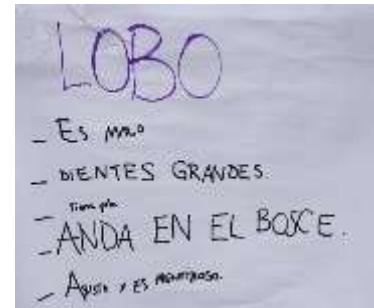 LOBO
_ Es malo
_ DIENTES GRANDES.
_ Tiene pelo
_ ANDA EN EL BOSCE.
_ Asusta y ES MONSTRUOSO.